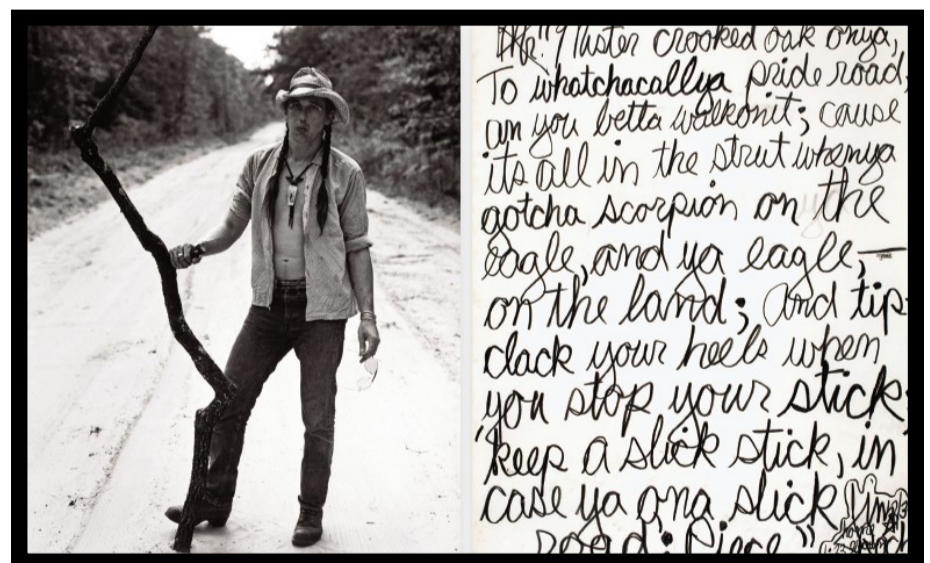 Mister crooked oak onya,
To whatchacallya pride road,
an you betta walkonit; cause
its all in the strut whenya
gotcha scorpion on the
eagle, and ya eagle,—
on the land; and tip
clack your heels when
you stop your stick
keep a slick stick, in
case ya ona slick
road. Piece"